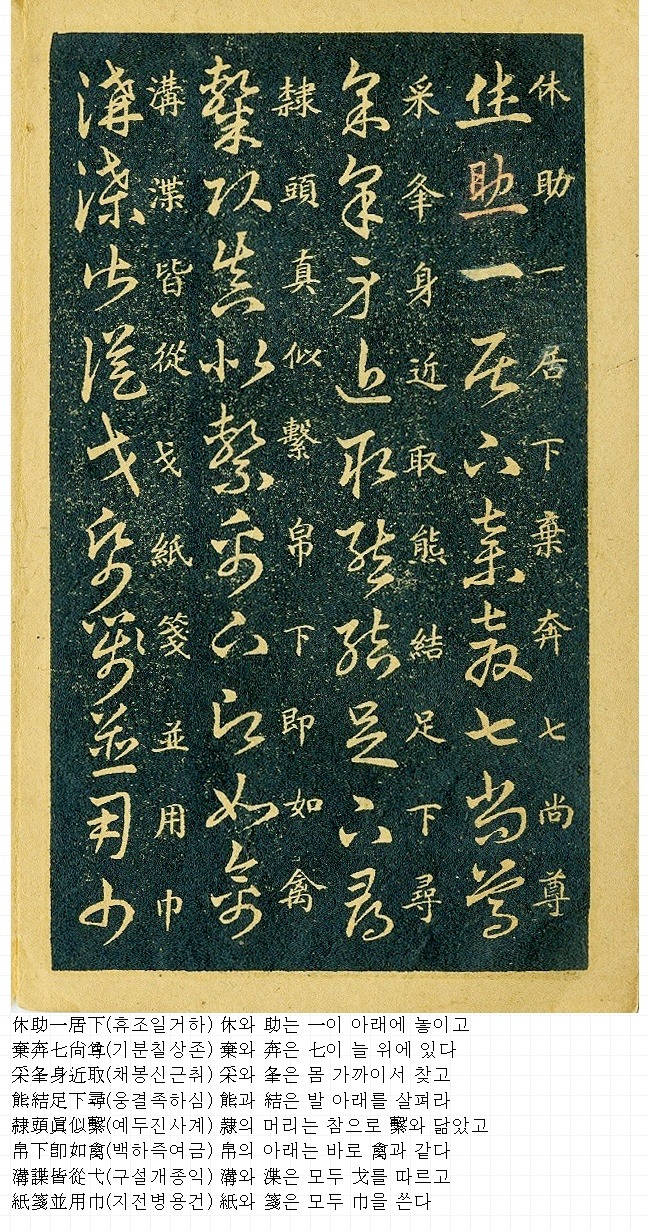 休助一居下棄奔七尚尊
休助一居下棄奔七尚尊
采夆身近取熊結足下尋
采夆身近取熊結足下尋
隸頭真似繫帛下即如禽
隸頭真似繫帛下即如禽
溝渫皆從戈紙箋並用巾
溝渫皆從戈紙箋並用巾
休助一居下(휴조일거하) 休와 助는 一이 아래에 놓이고
棄奔七尙尊(기분칠상존) 棄와 奔은 七이 늘 위에 있다
采夆身近取(채봉신근취) 采와 夆은 몸 가까이서 찾고
熊結足下尋(웅결족하심) 熊과 結은 발 아래를 살펴라
隸頭眞似繫(예두진사계) 隸의 머리는 참으로 繫와 닮았고
帛下卽如禽(백하즉여금) 帛의 아래는 바로 禽과 같다
溝渫皆從弋(구설개종익) 溝와 渫은 모두 戈를 따르고
紙箋並用巾(지전병용건) 紙와 箋은 모두 巾을 쓴다